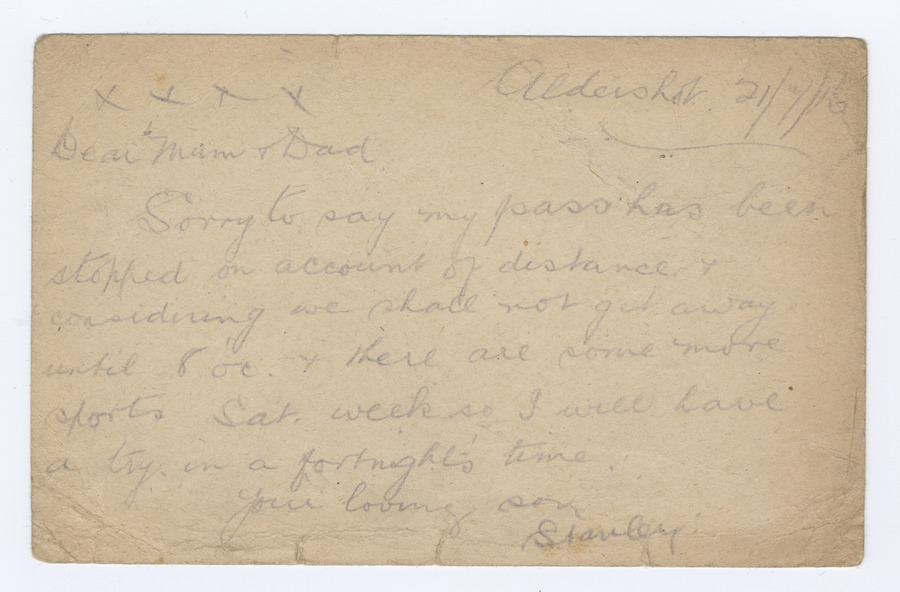 Aldershot. 21/7/16
x x x x
Dear Mum & Dad
Sorry to say my pass has been
stopped on account of distance &
considering we shall not get away
until 8 oc. & there are some more
sports Sat. week so I will have
a try in a fortnight's time.
Your loving son
Stanley.